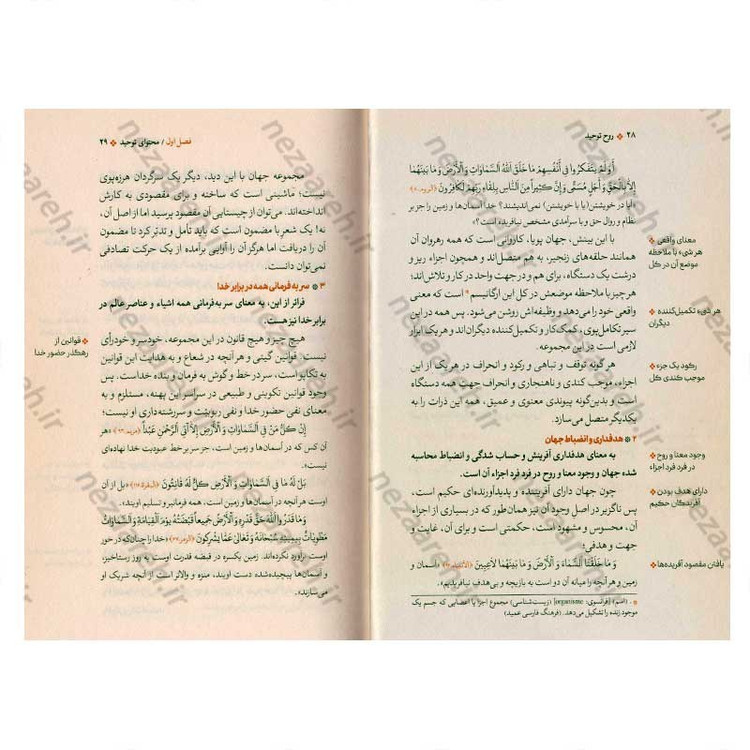 ۲۸ روح توحید
أَوَلَمْ يَتَفَكَّرُوا فِي أَنْفُسِهِمْ مَا خَلَقَ اللَّهُ السَّمَاوَاتِ وَالْأَرْضَ وَمَا بَيْنَهُمَا
إِلَّا بِالْحَقِّ وَأَجَلٍ مُسَمًّى وَإِنَّ كَثِيرًا مِنَ النَّاسِ بِلِقَاءِ رَبِّهِمْ لَكَافِرُونَ
«آیا در خویشتن (یا با خویشتن) نمی‌اندیشند؟ خدا آسمان‌ها و زمین را جز بر
نظام و روال حق و با سرآمدی مشخص نیافریده است؟»
با این بینش، جهان پویا، کاروانی است که همه رهروان آن
همانند حلقه‌های زنجیر، به هم متصل‌اند و همچون اجزاء ریز و
درشت یک دستگاه، برای هم و در جهت واحد در کار و تلاش‌اند؛
هر چیز با ملاحظه موضعش در کل این ارگانیسم* است که معنی
واقعی خود را می‌دهد و وظیفه‌اش روشن می‌شود. پس همه در این
سیر تکامل‌پوی، کمک‌کار و تکمیل‌کننده دیگران‌اند و هر یک ابزار
لازمی است در این مجموعه.
هرگونه توقف و تباهی و رکود و انحراف در هر یک از این
اجزاء، موجب کندی و ناهنجاری و انحراف جهت همه دستگاه
است و بدین‌گونه پیوندی معنوی و عمیق، همه این ذرات را به
یکدیگر متصل می‌سازد.
۲ هدفداری و انضباط جهان
به معنای هدفداری آفرینش و حساب شدگی و انضباط محاسبه
شده جهان و وجود معنا و روح در فرد فرد اجزاء آن است.
چون جهان دارای آفریننده و پدیدآورنده‌ای حکیم است،
پس ناگزیر در اصل وجود آن نیز همان‌طور که در بسیاری از اجزاء
آن، محسوس و مشهود است، حکمتی است و برای آن، غایت و
جهت و هدفی؛
وَمَا خَلَقْنَا السَّمَاءَ وَالْأَرْضَ وَمَا بَيْنَهُمَا لَاعِبِينَ «آسمان و
زمین و هر آنچه را میانه آن دو است به بازیچه و بی‌هدف نیافریدیم»
* (اسم) [فرانسوی: organisme] (زیست‌شناسی) مجموع اجزا یا اعضایی که جسم یک
موجود زنده را تشکیل می‌دهد. (فرهنگ فارسی عمید)
معنای واقعی
هر شیء با ملاحظه
موضع آن در کل
هر شیء تکمیل‌کننده
دیگران
رکود یک جزء
موجب کندی کل
وجود معنا و روح
در فرد فرد اجزاء
دارای هدف بودن
آفریدگان حکیم
یافتن مقصود آفریده‌ها
فصل اول / محتوای توحید ۲۹
مجموعه جهان با این دید، دیگر یک سرگردان هرزه‌پوی
نیست؛ ماشینی است که ساخته و برای مقصودی به کارش
انداخته‌اند. می‌توان از چیستایی آن مقصود پرسید اما از اصل آن،
نه! یک شعر با مضمون است که باید تأمل و تدبّر کرد تا مضمون
آن را دریافت اما هرگز آن را آوایی برآمده از یک حرکت تصادفی
نمی‌توان دانست.
۳ سر به فرمانی همه در برابر خدا
فراتر از این، به معنای سر‌به‌فرمانی همه اشیاء و عناصر عالم در
برابر خدا نیز هست.
هیچ چیز و هیچ قانون در این مجموعه، خودسر و خودرأی
نیست. قوانین گیتی و هر آنچه در شعاع و به هدایت این قوانین
به تکاپو است، سر در خط و گوش به فرمان و بنده خداست. پس
وجود قوانین تکوینی و طبیعی در سراسر این پهنه، مستلزم و به
معنای نفی حضور خدا و نفی ربوبیّت و سررشته‌داری او نیست؛
إِنْ كُلُّ مَنْ فِي السَّمَاوَاتِ وَالْأَرْضِ إِلَّا آتِي الرَّحْمَٰنِ عَبْدًا (مریم، ۹۳) «هر
آن کس که در آسمان‌ها و زمین است، جز سر بر خط عبودیت خدا نهاده‌ای
نیست».
بَلْ لَهُ مَا فِي السَّمَاوَاتِ وَالْأَرْضِ كُلٌّ لَهُ قَانِتُونَ (البقرة، ۱۱۶) «از
اوست هر آنچه در آسمان‌ها و زمین است، همه فرمانبر و تسلیم اویند».
وَمَا قَدَرُوا اللَّهَ حَقَّ قَدْرِهِ وَالْأَرْضُ جَمِيعًا قَبْضَتُهُ يَوْمَ الْقِيَامَةِ وَالسَّمَاوَاتُ
مَطْوِيَّاتٌ بِيَمِينِهِ سُبْحَانَهُ وَتَعَالَىٰ عَمَّا يُشْرِكُونَ (الزمر، ۶۷) «خدا را چنان‌که در خور
اوست برآورد نکرده‌اند. زمین یکسره در قبضه قدرت اوست به روز رستاخیز،
و آسمان‌ها پیچیده‌شده دست اویند، منزه و والاتر است از آنچه شریک او
می‌سازند».
قوانین از
رهگذر حضور خدا
nezaareh.ir